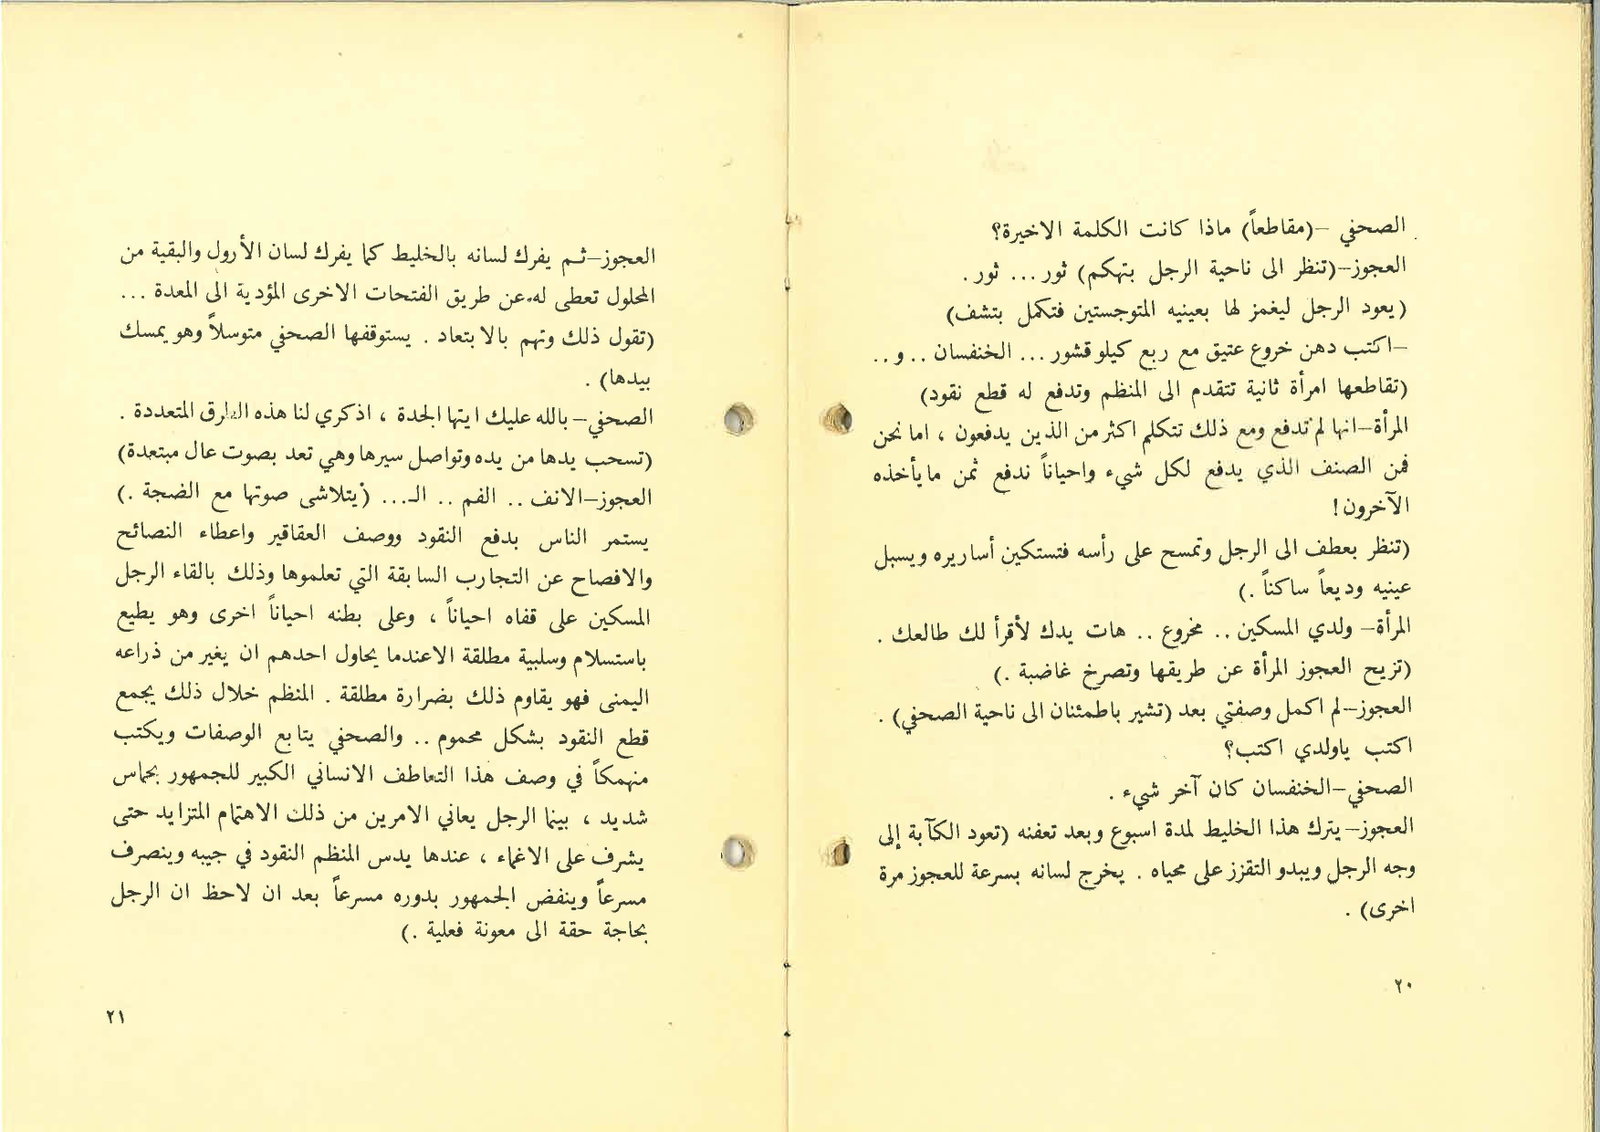 الصحفي –(مقاطعاً) ماذا كانت الكلمة الاخيرة؟
العجوز–(تنظر الى ناحية الرجل بتهكم) ثور... ثور.
(يعود الرجل ليغمز لها بعينيه المتوجستين فتكمل بتشف)
–اكتب دهن خروع عتيق مع ربع كيلو قشور... الخنفسان .. و ..
(تقاطعها امرأة ثانية تتقدم الى المنظم وتدفع له قطع نقود)
المرأة–انها لم تدفع ومع ذلك تتكلم اكثر من الذين يدفعون ، اما نحن
فمن الصنف الذي يدفع لكل شيء واحياناً ندفع ثمن ما يأخذه
الآخرون!
(تنظر بعطف الى الرجل وتمسح على رأسه فتستكين أساريره ويسبل
عينيه وديعاً ساكناً .)
المرأة– ولدي المسكين .. مخروع .. هات يدك لأقرأ لك طالعك .
(تزيح العجوز المرأة عن طريقها وتصرخ غاضبة .)
العجوز–لم اكمل وصفتي بعد (تشير باطمئنان الى ناحية الصحفي) .
اكتب ياولدي اكتب؟
الصحفي–الخنفسان كان آخر شيء .
العجوز–يترك هذا الخليط لمدة اسبوع وبعد تعفنه (تعود الكآبة إلى
وجه الرجل ويبدو التقزز على محياه . يخرج لسانه بسرعة للعجوز مرة
اخرى) .
٢٠
العجوز–ثم يفرك لسانه بالخليط كما يفرك لسان الأرول والبقية من
المحلول تعطى له عن طريق الفتحات الاخرى المؤدية الى المعدة ...
(تقول ذلك وتهم بالابتعاد . يستوقفها الصحفي متوسلاً وهو يمسك
بيدها) .
الصحفي– بالله عليك ايتها الجدة ، اذكري لنا هذه الطرق المتعددة .
(تسحب يدها من يده وتواصل سيرها وهي تعد بصوت عال مبتعدة)
العجوز–الانف .. الفم .. الـ... (يتلاشى صوتها مع الضجة .)
يستمر الناس بدفع النقود ووصف العقاقير واعطاء النصائح
والافصاح عن التجارب السابقة التي تعلموها وذلك بالقاء الرجل
المسكين على قفاه احياناً ، وعلى بطنه احياناً اخرى وهو يطيع
باستسلام وسلبية مطلقة الاعندما يحاول احدهم ان يغير من ذراعه
اليمنى فهو يقاوم ذلك بضرارة مطلقة . المنظم خلال ذلك يجمع
قطع النقود بشكل محموم .. والصحفي يتابع الوصفات ويكتب
منهمكاً في وصف هذا التعاطف الانساني الكبير للجمهور بحماس
شديد ، بينما الرجل يعاني الامرين من ذلك الاهتمام المتزايد حتى
يشرف على الاغماء ، عندها يدس المنظم النقود في جيبه وينصرف
مسرعاً وينفض الجمهور بدوره مسرعاً بعد ان لاحظ ان الرجل
بحاجة حقة الى معونة فعلية .)
٢١